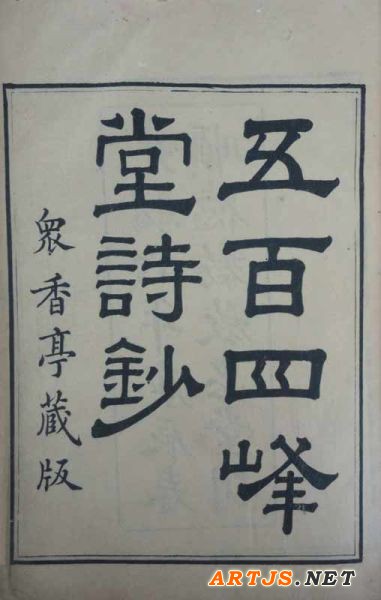 五百四峰
堂詩鈔
衆香亭藏版
ARTJS.NET